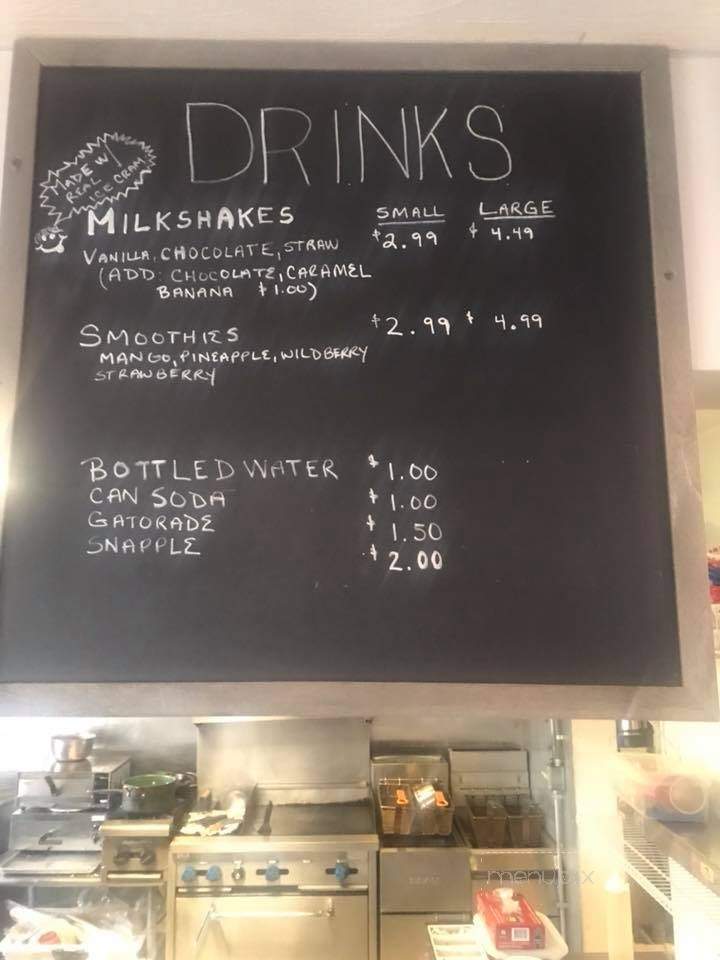 DRINKS
MADE W/
REAL
ICE CRAM
MILKSHAKES SMALL LARGE
VANILLA, CHOCOLATE, STRAW $2.99 $4.49
(ADD: CHOCOLATE, CARAMEL
BANANA $1.00)
SMOOTHIES $2.99 $4.99
MANGO, PINEAPPLE, WILDBERRY
STRAWBERRY
BOTTLED WATER $1.00
CAN SODA $1.00
GATORADE $1.50
SNAPPLE $2.00
menupix